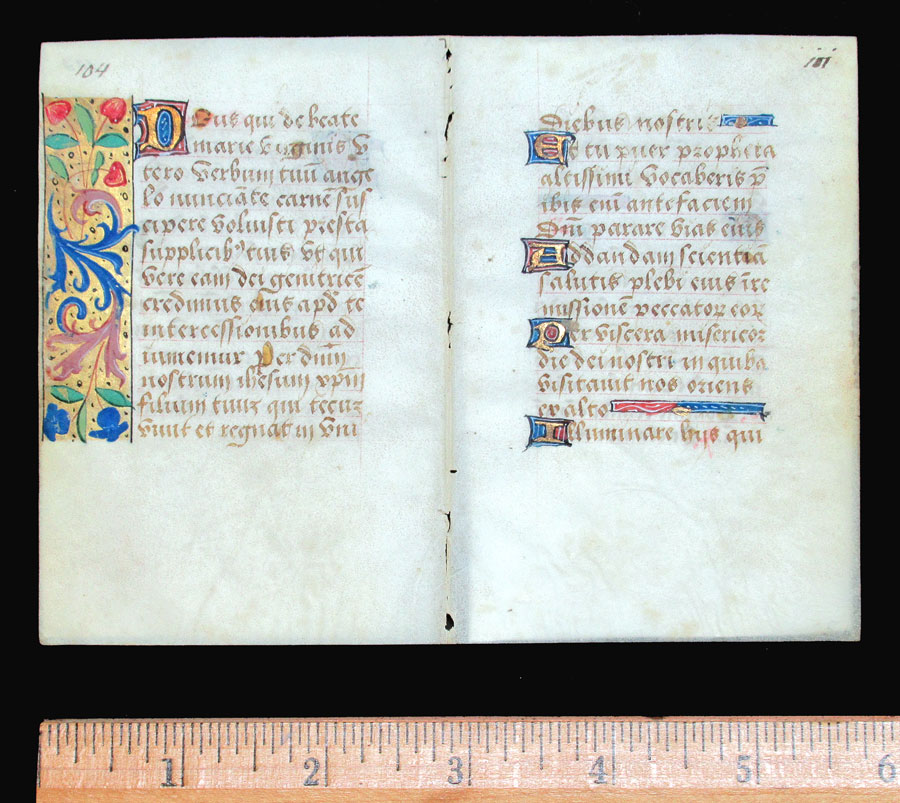 104
Deus qui de beate
marie virginis v
tero verbum tuũ ange
lo nunciãte carnẽ sus
cipere voluisti presta
supplicib⁹ tuis vt qui
vere eam dei genitricẽ
credimus eius apd te
intercessionibus ad
iuuemur Per dñm
nostrum ihesum xp̃m
filium tuuz qui tecuz
viuit et regnat in vni
111
diebus nostris
Et tu puer propheta
altissimi vocaberis p̃
ibis enĩ ante faciem
dñi parare vias eius
Ad dandam scientiã
salutis plebi eius ĩ re
missionẽ peccatoꝝ eoꝝ
Per viscera misericor
die dei nostri in quibꝰ
visitauit nos oriens
ex alto
Illuminare hijs qui
1
2
3
4
5
6